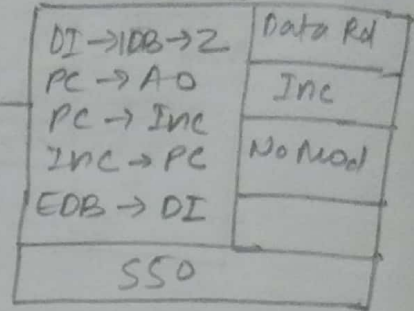 DI→IDB→Z
PC→AO
PC→Inc
Inc→PC
EDB→DI
Data Rd
Inc
No Mod
SSO